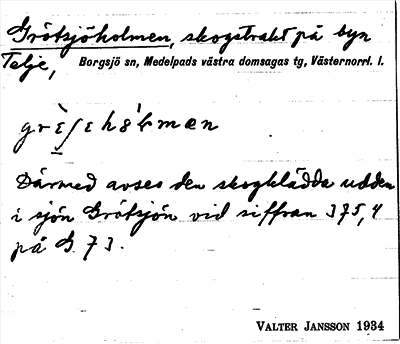 Grötsjöholmen, skogstrakt på byn
Telje, Borgsjö sn, Medelpads västra domsagas tg, Västernorrl. l.
Därmed avses den skogklädda udden
i sjön Grötsjön vid siffran 375,4
på G. 73.
VALTER JANSSON 1934